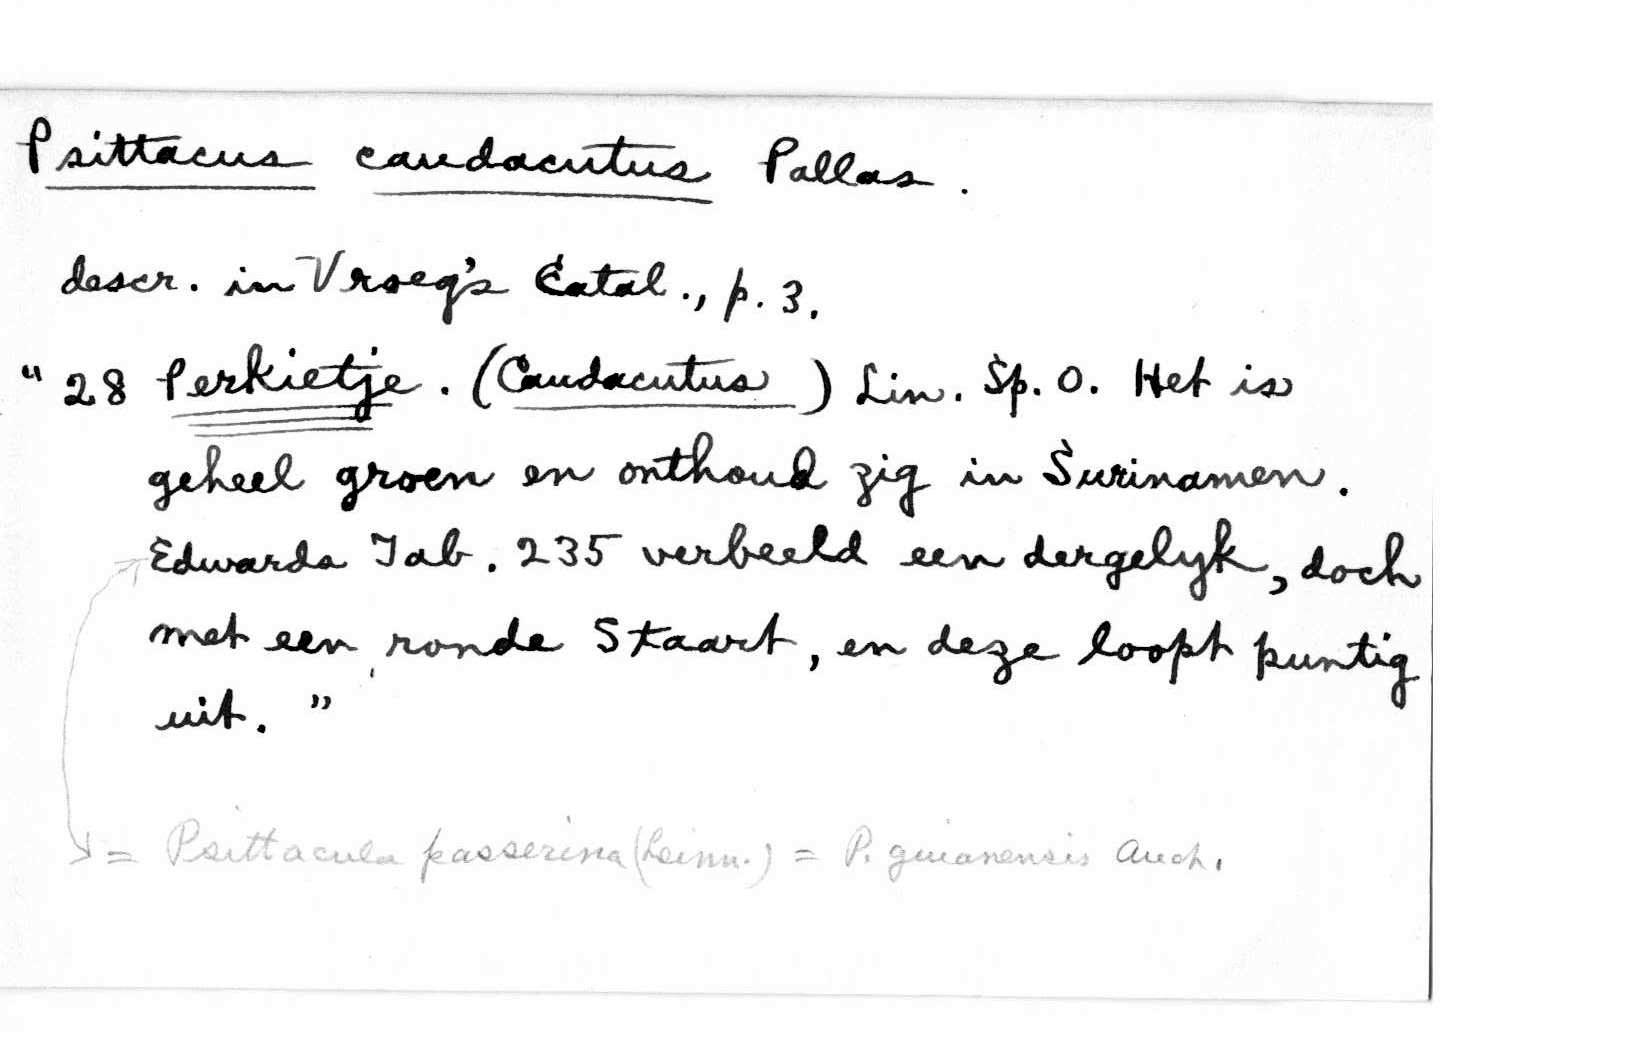 Psittacus caudacutus Pallas.
descr. in Vroeg's Catal., p. 3.
"28 Perkietje. (Caudacutus) Lin. Sp. 0. Het is
geheel groen en onthoud zig in Surinamen.
Edwards Tab. 235 verbeeld een dergelyk, doch
met een ronde Staart, en deze loopt puntig
uit."
= Psittacula passerina (Linn.) = P. guianensis Auch.